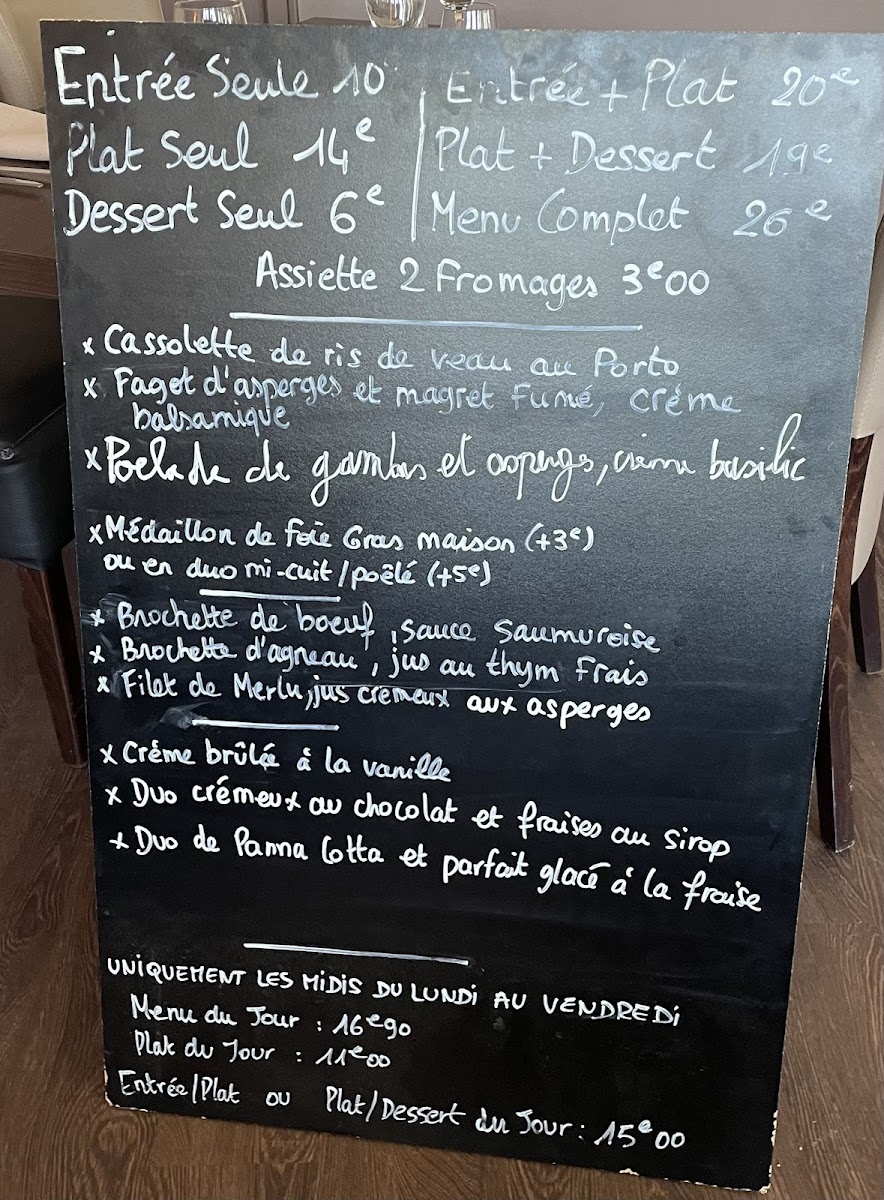 Entrée Seule 10
Plat Seul 14e
Dessert Seul 6e
Entrée + Plat 20e
Plat + Dessert 19e
Menu Complet 26e
Assiette 2 Fromages 3e00
x Cassolette de ris de veau au Porto
x Fagot d'asperges et magret Fumé, crème
balsamique
x Poelade de gambas et asperges, crème basilic
x Médaillon de foie Gras maison (+3e)
ou en duo mi-cuit/poêlé (+5e)
x Brochette de boeuf, sauce Saumuroise
x Brochette d'agneau, jus au thym Frais
x Filet de Merlu, jus crémeux aux asperges
x Crème brûlée à la vanille
x Duo crémeux au chocolat et fraises au sirop
x Duo de Panna Cotta et parfait glacé à la fraise
UNIQUEMENT LES MIDIS DU LUNDI AU VENDREDI
Menu du Jour : 16e90
Plat du Jour : 11e00
Entrée/Plat ou Plat/Dessert du Jour : 15e00